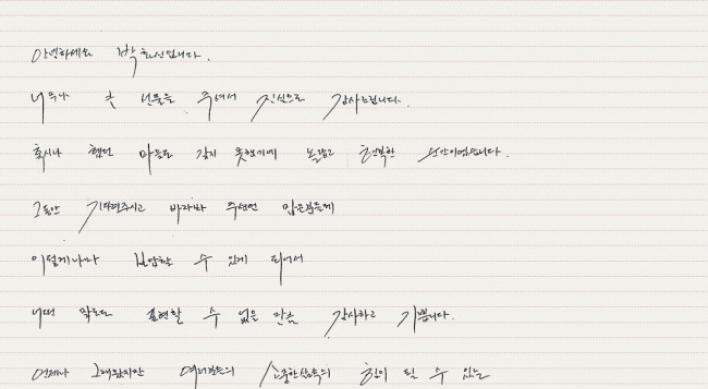 안녕하세요 박효신입니다.
너무나 큰 선물을 주셔서 진심으로 감사드립니다.
혹시나 했던 마음도 갖지 못했기에 놀랍고 행복한 순간이었습니다.
그동안 기다려주시고 바라봐 주셨던 많은분들께
이렇게나마 보답할 수 있게 되어서
어떤 말로도 표현할 수 없을 만큼 감사하고 기쁩니다.
언제나 그래왔지만 여러분들의 소중한 삶속의 힘이 될 수 있는